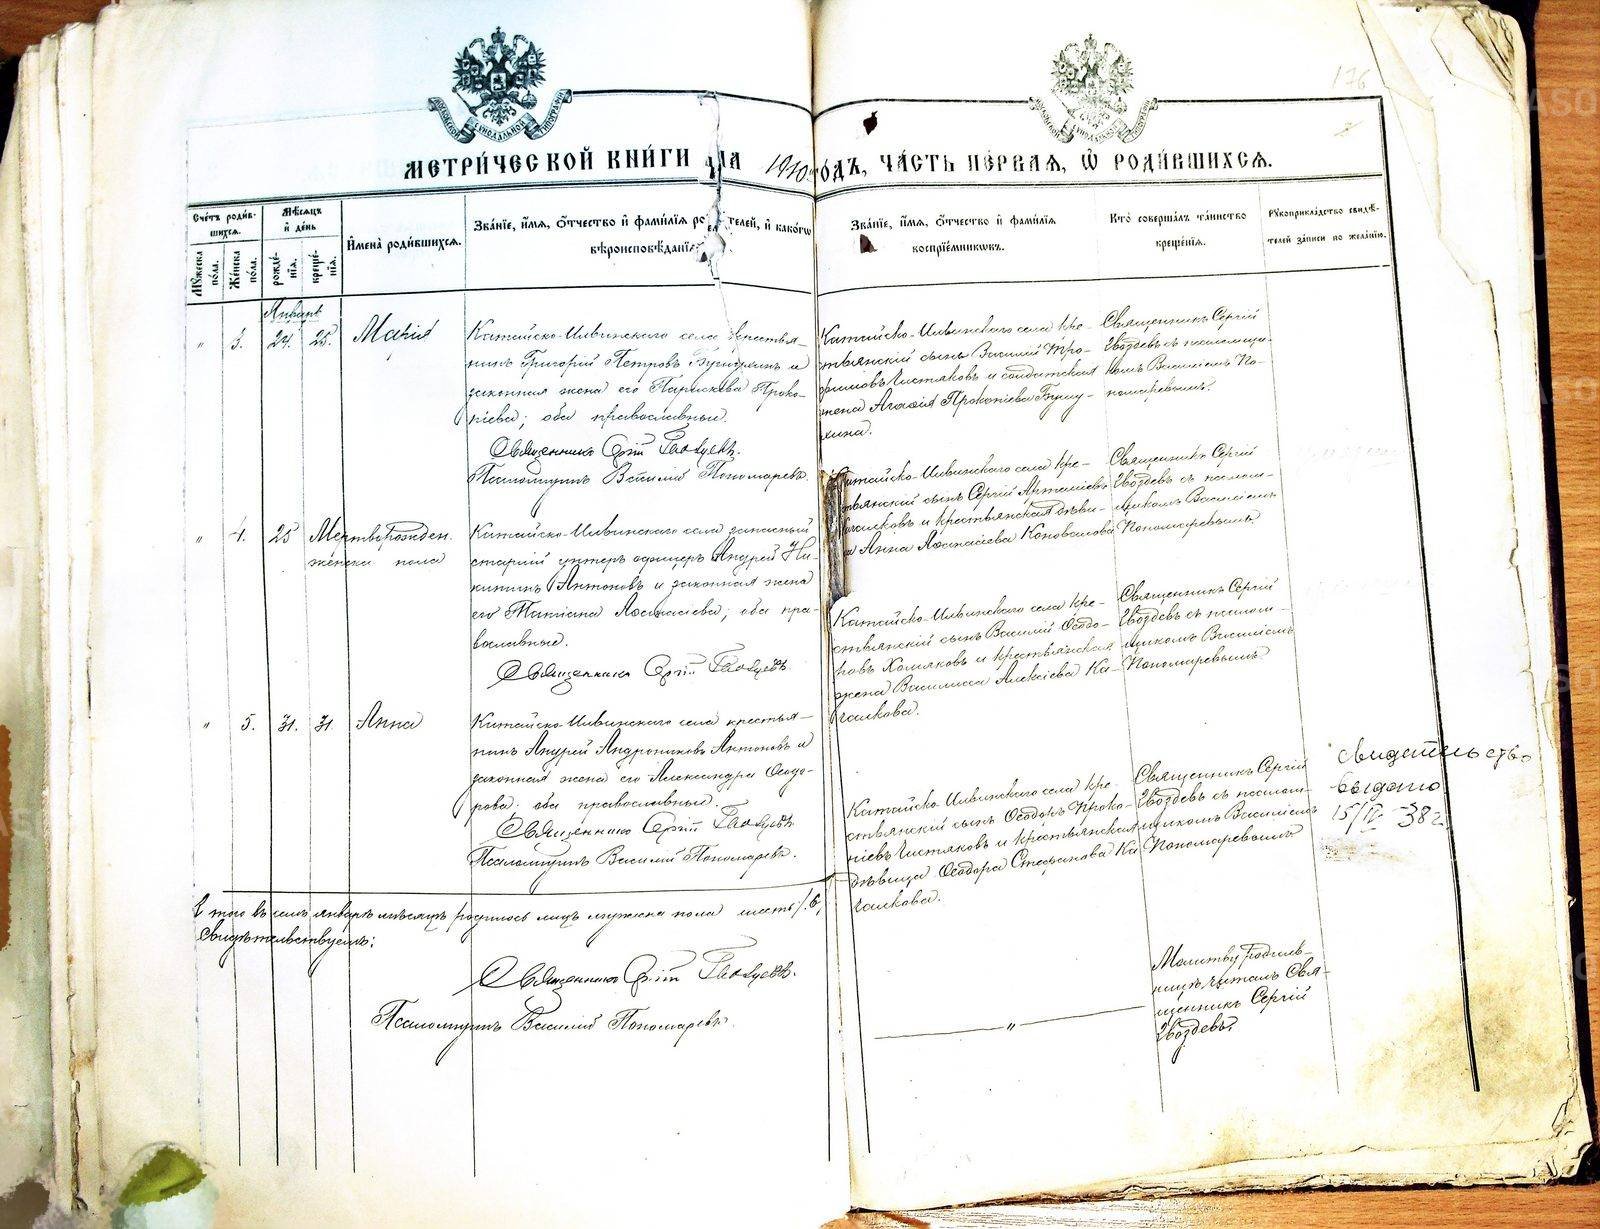 МЕТРИ́ЧЕСКОЙ КНИ́ГИ НА 1910 ГОДЪ, ЧА́СТЬ ПЕ́РВАЯ, Ѡ РОДИ́ВШИХСЯ.
176
Сче́тъ роди́в-
шихся.
Мѣ́сяцъ
и́ день
Му́жеска
по́ла.
Же́нска
по́ла.
рожде́-
нїя.
креще́-
нїя.
И́мена роди́вшихся.
Зва́нїе, и́мя, ѻ҆́тчество и́ фами́лїя роди́телей, и́ како́гѡ
вѣроисповѣ́данїя.
Зва́нїе, и́мя, ѻ҆́тчество и́ фами́лїя
воспрїе́мниковъ.
Кто́ соверша́лъ та́инство
креще́нїя.
Рукоприкла́дство свидѣ́-
телей за́писи по жела́нїю.
Январь
" 3. 24. 25. Марія
Катайско-Ильинскаго села крестья-
нинъ Григорій Петровъ и
законная жена его Параскева Проко-
піева; оба православные.
Священникъ Сергій Гвоздевъ.
Псаломщикъ Василій Пономаревъ.
Катайско-Ильинскаго села кре-
стьянскій сынъ Василій Тро-
фимовъ Чистяковъ и солдатская
жена Агафія Прокопіева
хина.
Священникъ Сергій
Гвоздевъ съ псаломщи-
комъ Василіемъ По-
номаревымъ.
" 4. 25 Мертворожден.
женска пола
Катайско-Ильинскаго села запасный
старшій унтеръ офицеръ Андрей Ни-
китинъ Антоновъ и законная жена
его Татіана Аѳанасіева; оба пра-
вославные.
Священникъ Сергій Гвоздевъ
Катайско-Ильинскаго села кре-
стьянскій сынъ Сергій Артеміевъ
Качалковъ и крестьянская дѣви-
ца Анна Аѳанасіева Коновалова
Священникъ Сергій
Гвоздевъ съ псалом-
щикомъ Василіемъ
Пономаревымъ.
Катайско-Ильинскаго села кре-
стьянскій сынъ Василій Ѳеодо-
ровъ Хомяковъ и крестьянская
жена Василисса Алексіева Ка-
чалкова.
Священникъ Сергій
Гвоздевъ съ псалом-
щикомъ Василіемъ
Пономаревымъ.
" 5. 31. 31 Анна
Катайско-Ильинскаго села крестья-
нинъ Андрей Андрониковъ Антоновъ и
законная жена его Александра Ѳеодо-
рова; оба православные.
Священникъ Сергій Гвоздевъ
Псаломщикъ Василій Пономаревъ.
Катайско-Ильинскаго села кре-
стьянскій сынъ Ѳеодоръ Проко-
піевъ Чистяковъ и крестьянская
дѣвица Ѳеодора Стефанова Ка-
чалкова.
Священникъ Сергій
Гвоздевъ съ псалом-
щикомъ Василіемъ
Пономаревымъ
свидетельство
выдано
15/IV-38 г.
Итого въ семъ январѣ мѣсяцѣ родилось лицъ мужска пола шесть /6/
Свидѣтельствуемъ:
Священникъ Сергій Гвоздевъ.
Псаломщикъ Василій Пономаревъ.
"
Молитву родиль-
ницѣ читалъ Свя-
щенникъ Сергій
Гвоздевъ.